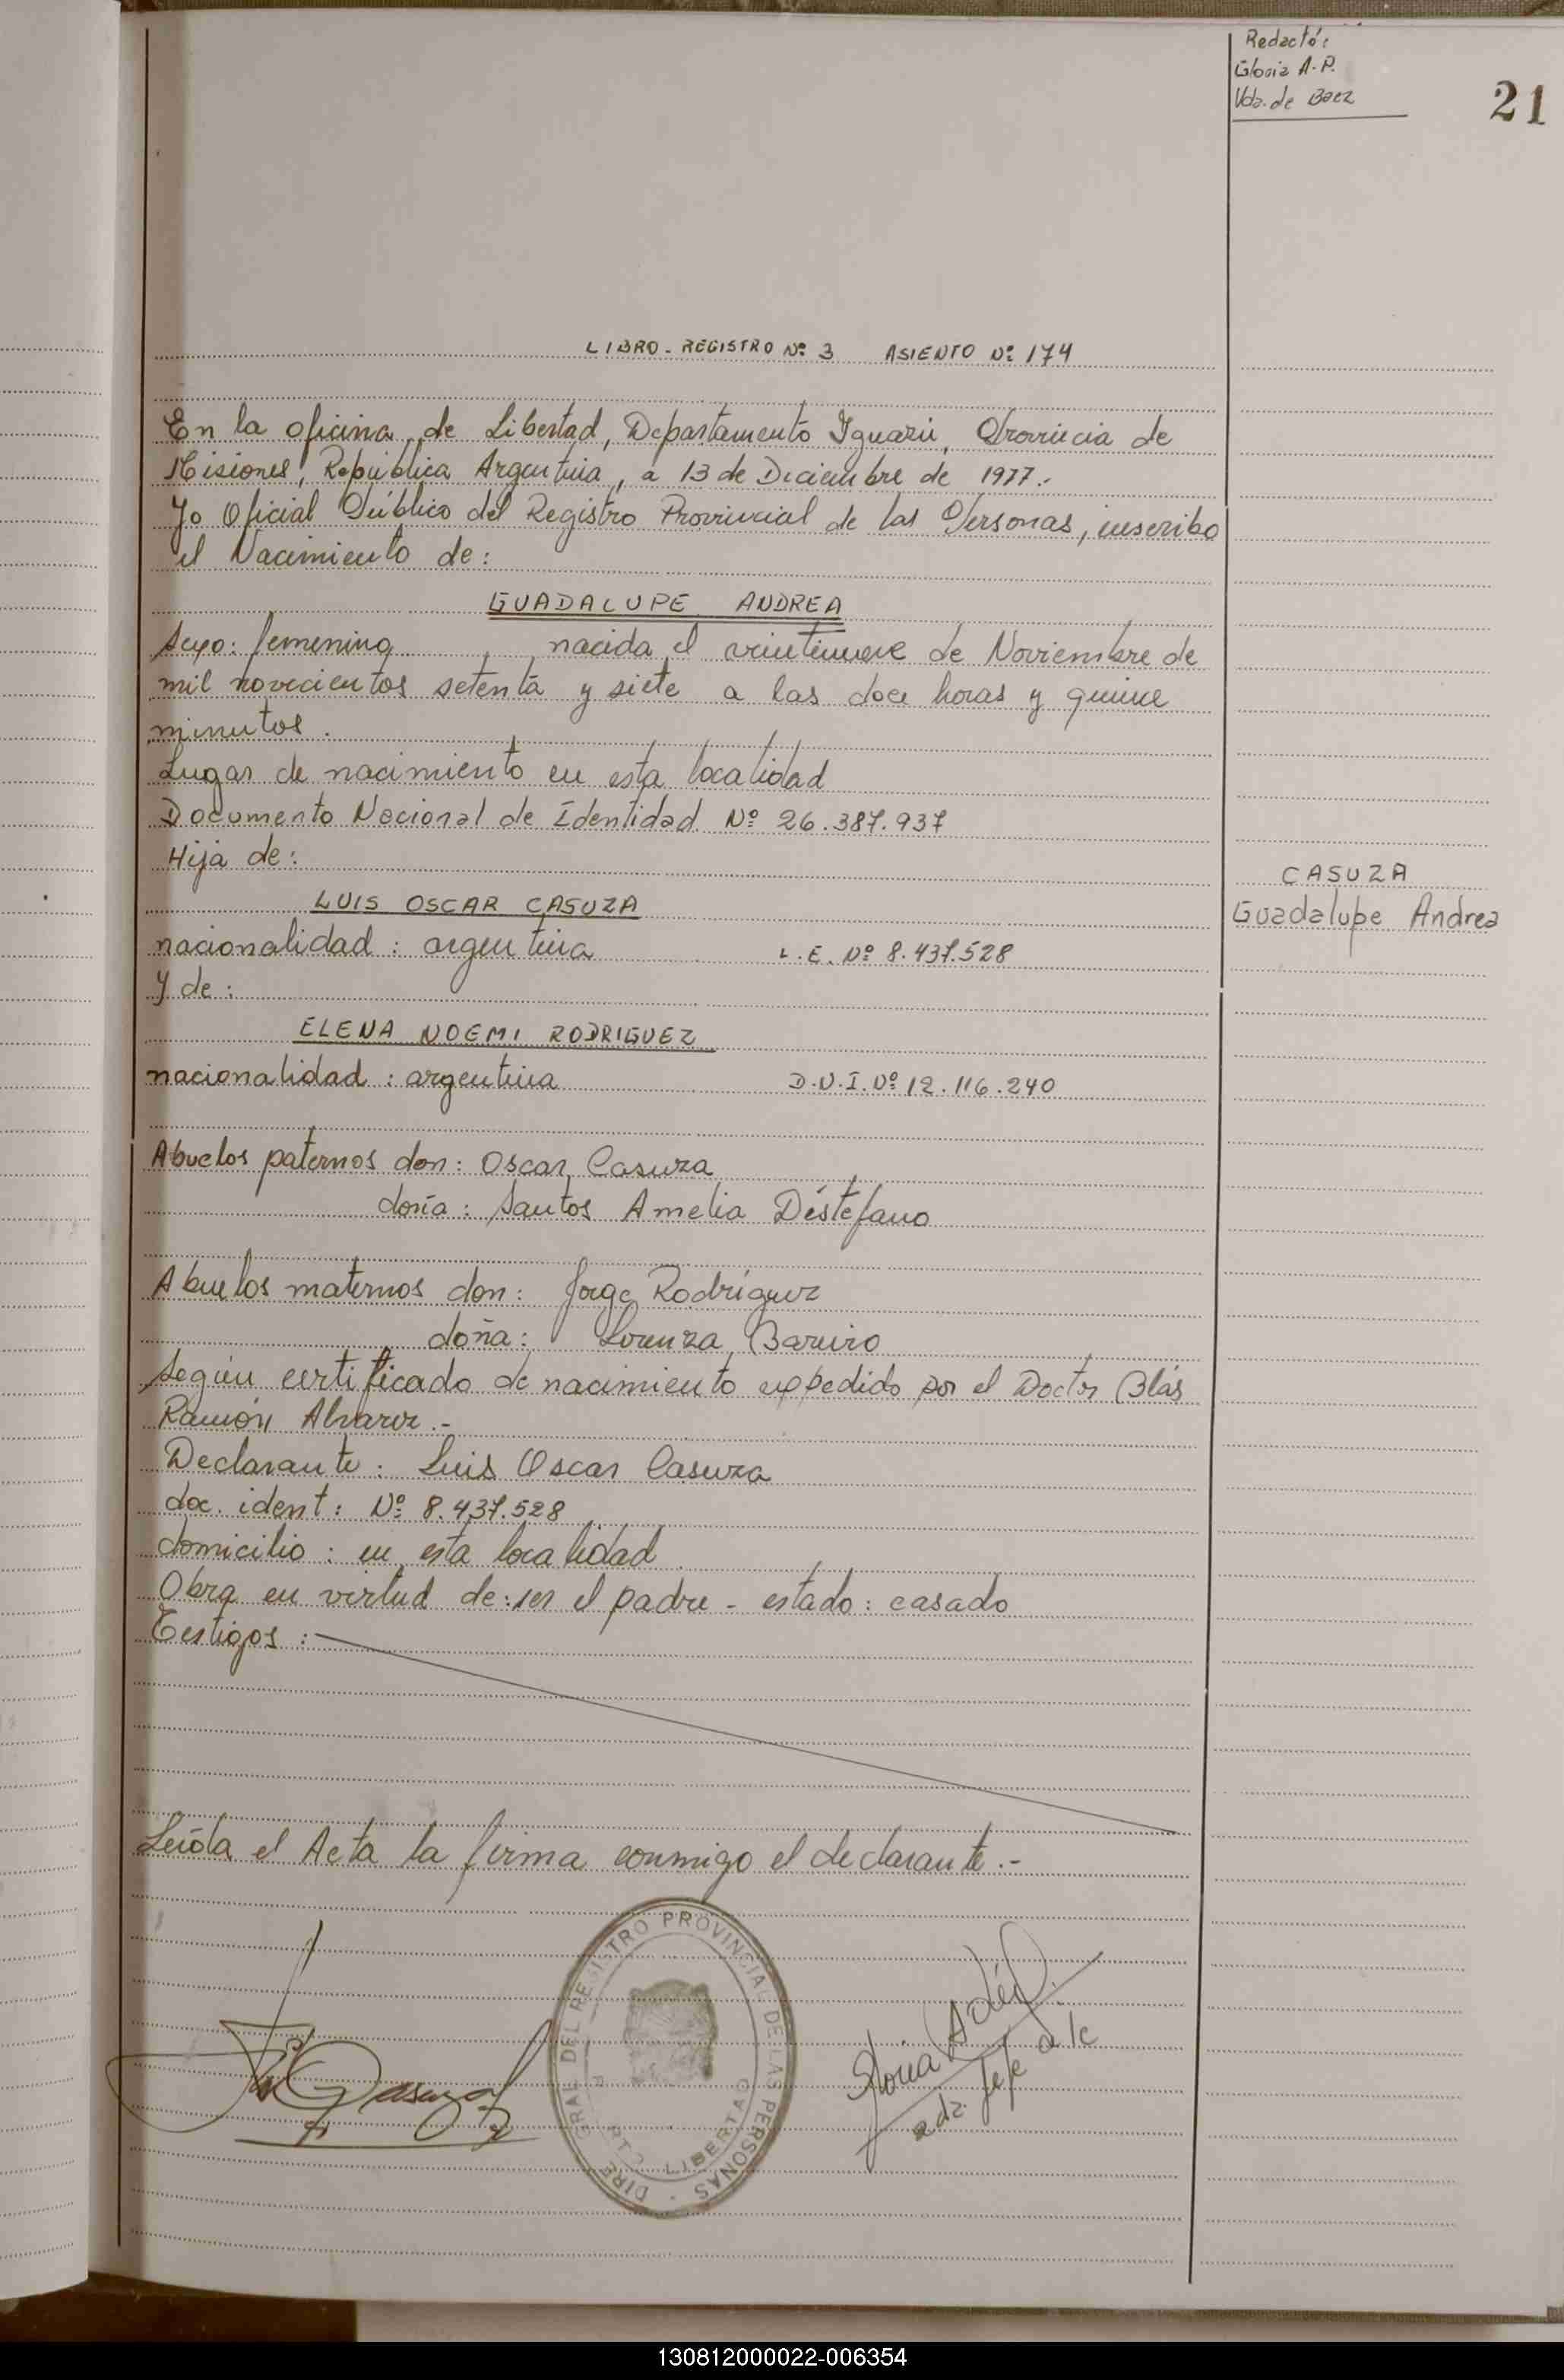 Redactó:
Gloria A. P.
Vda. de Baez
21
LIBRO - REGISTRO Nº 3 ASIENTO Nº 174
En la oficina de Libertad, Departamento Iguazú, Provincia de
Misiones, República Argentina, a 13 de Diciembre de 1977.
Yo Oficial Público del Registro Provincial de las Personas, inscribo
el Nacimiento de:
GUADALUPE ANDREA
Sexo: femenino, nacida el veintinueve de Noviembre de
mil novecientos setenta y siete a las doce horas y quince
minutos.
Lugar de nacimiento en esta localidad
Documento Nacional de Identidad Nº 26.387.937
Hija de:
CASUZA
LUIS OSCAR CASUZA
Guadalupe Andrea
nacionalidad: argentina L.E. Nº 8.437.528
Y de:
ELENA NOEMI RODRIGUEZ
nacionalidad: argentina D.N.I. Nº 12.116.240
Abuelos paternos don: Oscar Casuza
doña: Santos Amelia Déstefano
Abuelos maternos don: Jorge Rodríguez
doña: Lorenza Bareiro
Según certificado de nacimiento expedido por el Doctor Blás
Ramón Alvarez.-
Declarante: Luis Oscar Casuza
doc. ident: Nº 8.437.528
domicilio: en esta localidad
Obra en virtud de: ser el padre - estado: casado
Testigos:
Leída el Acta la firma conmigo el declarante.-
DIRE GRAL DEL REGISTRO PROVINCIAL DE LAS PERSONAS
LIBERTAD
Gloria
Jefe a/c
130812000022-006354